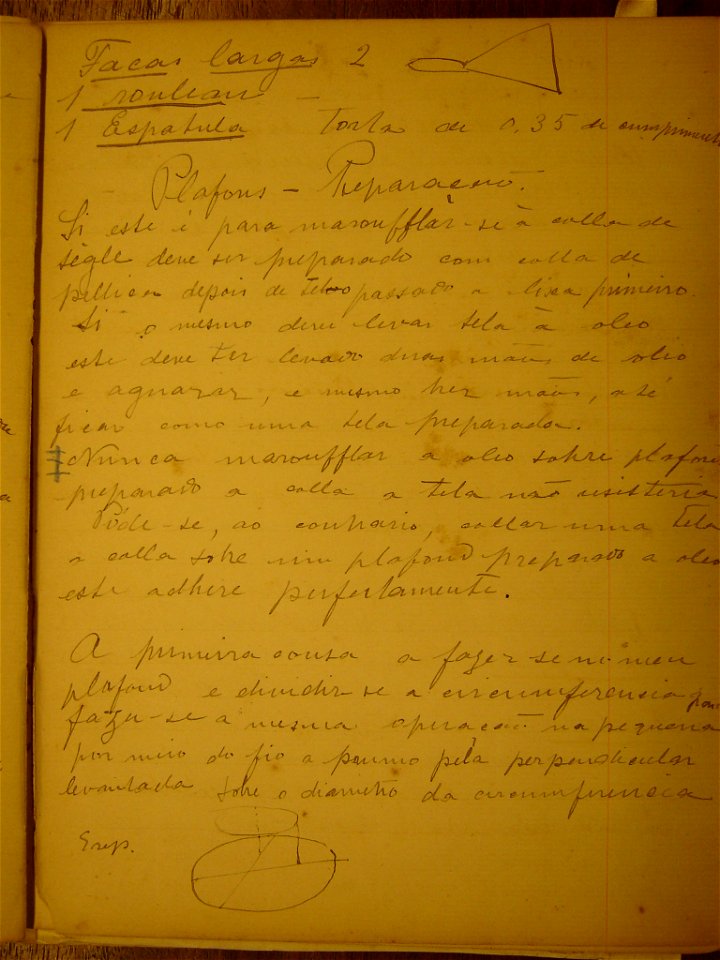 Facas largas 2
1 rouleau
1 Espatula Torta de 0,35 de cumprimento
Plafons - Preparacão.
Si este é para maroufflar-se à colla de
sègle deve ser preparado com colla de
pellica depois de passado a lixa primeiro.
Si o mesmo deve levar tela à oleo
este deve ter levado duas mãos de olio
e aguaraz, e mesmo trez mãos, até
ficar como uma tela preparada.
Nunca maroufflar a oleo sobre plafond
preparado a colla a tela não resisteria
Póde-se, ao contrario, collar uma tela
a colla sobre um plafond preparado a oleo
este adhere perfeitamente.
A primeira cousa a fazer-se no meu
plafond e dividir-se a circumferencia
fazer-se a mesma operação na pequena
por meio do fio a prumo pela perpendicular
levantada sobre o diametro da circumferencia